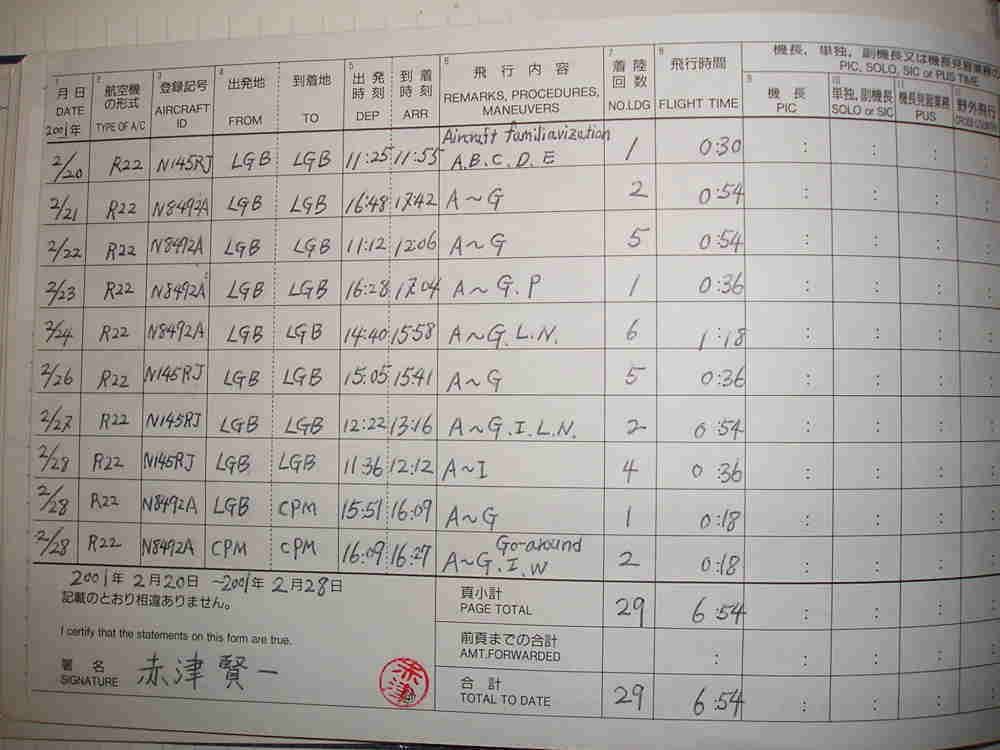 機長, 単独, 副機長又は機長見習業務の
PIC, SOLO, SIC or PUS TIME
1 月日 DATE 2001年 2 航空機の形式 TYPE OF A/C 3 登録記号 AIRCRAFT ID 4 出発地 FROM 到着地 TO 5 出発時刻 DEP 到着時刻 ARR 6 飛行内容 REMARKS, PROCEDURES, MANEUVERS 7 着陸回数 NO.LDG 8 飛行時間 FLIGHT TIME 9 機長 PIC 10 単独, 副機長 SOLO or SIC 11 機長見習業務 PUS 野外飛行 CROSS COUNTRY
2/20 R22 N145RJ LGB LGB 11:25 11:55 Aircraft familiavization A.B.C.D.E 1 0:30 : : : :
2/21 R22 N8492A LGB LGB 16:48 17:42 A~G 2 0:54 : : : :
2/22 R22 N8492A LGB LGB 11:12 12:06 A~G 5 0:54 : : : :
2/23 R22 N8492A LGB LGB 16:28 17:04 A~G.P 1 0:36 : : : :
2/24 R22 N8492A LGB LGB 14:40 15:58 A~G.L.N. 6 1:18 : : : :
2/26 R22 N145RJ LGB LGB 15:05 15:41 A~G 5 0:36 : : : :
2/27 R22 N145RJ LGB LGB 12:22 13:16 A~G.I.L.N. 2 0:54 : : : :
2/28 R22 N145RJ LGB LGB 11:36 12:12 A~I 4 0:36 : : : :
2/28 R22 N8492A LGB CPM 15:51 16:09 A~G 1 0:18 : : : :
2/28 R22 N8492A CPM CPM 16:09 16:27 Go-around A~G.I.W 2 0:18 : : : :
2001年2月20日~2001年2月28日
記載のとおり相違ありません。
I certify that the statements on this form are true.
署名 SIGNATURE 赤津賢一 赤津
頁小計 PAGE TOTAL 29 6:54 : : : :
前頁までの合計 AMT.FORWARDED : : : : :
合計 TOTAL TO DATE 29 6:54 : : : :